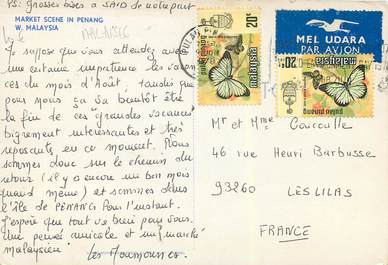 PS: Grosses bises à SAID de notre part
MARKET SCENE IN PENANG
W. MALAYSIA
MALAISIE
Je suppose que vous attendez avec
une certaine impatience les vacan
ces du mois d'Août, tandis que
pour nous ça va bientôt être
la fin de ces grandes vacances
bigrement interessantes et très
reposants en ce moment. Nous
sommes donc sur le chemin du
retour (il y a encore un bon mois
quand meme) et sommes dans
l'île de PENANG Pour l'instant.
J'espère que tout va bien pour vous.
Une pensée amicale et un marché
malaysien
Les
MEL UDARA
PAR AVION
20c
malaysia
pulau pinang
20c
malaysia
pulau pinang
Mr et Mme Courcuille
46 rue Henri Barbusse
93260 LES LILAS
FRANCE